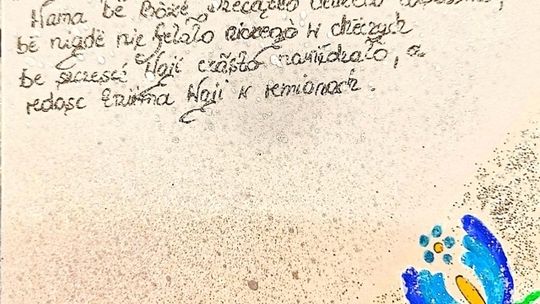 Nama bë Bòże
bë nigdë nie felało niczego w checzach
bë szczescé Waji czãsto nawiédzało, a
redosc trzima Waji w remionach.